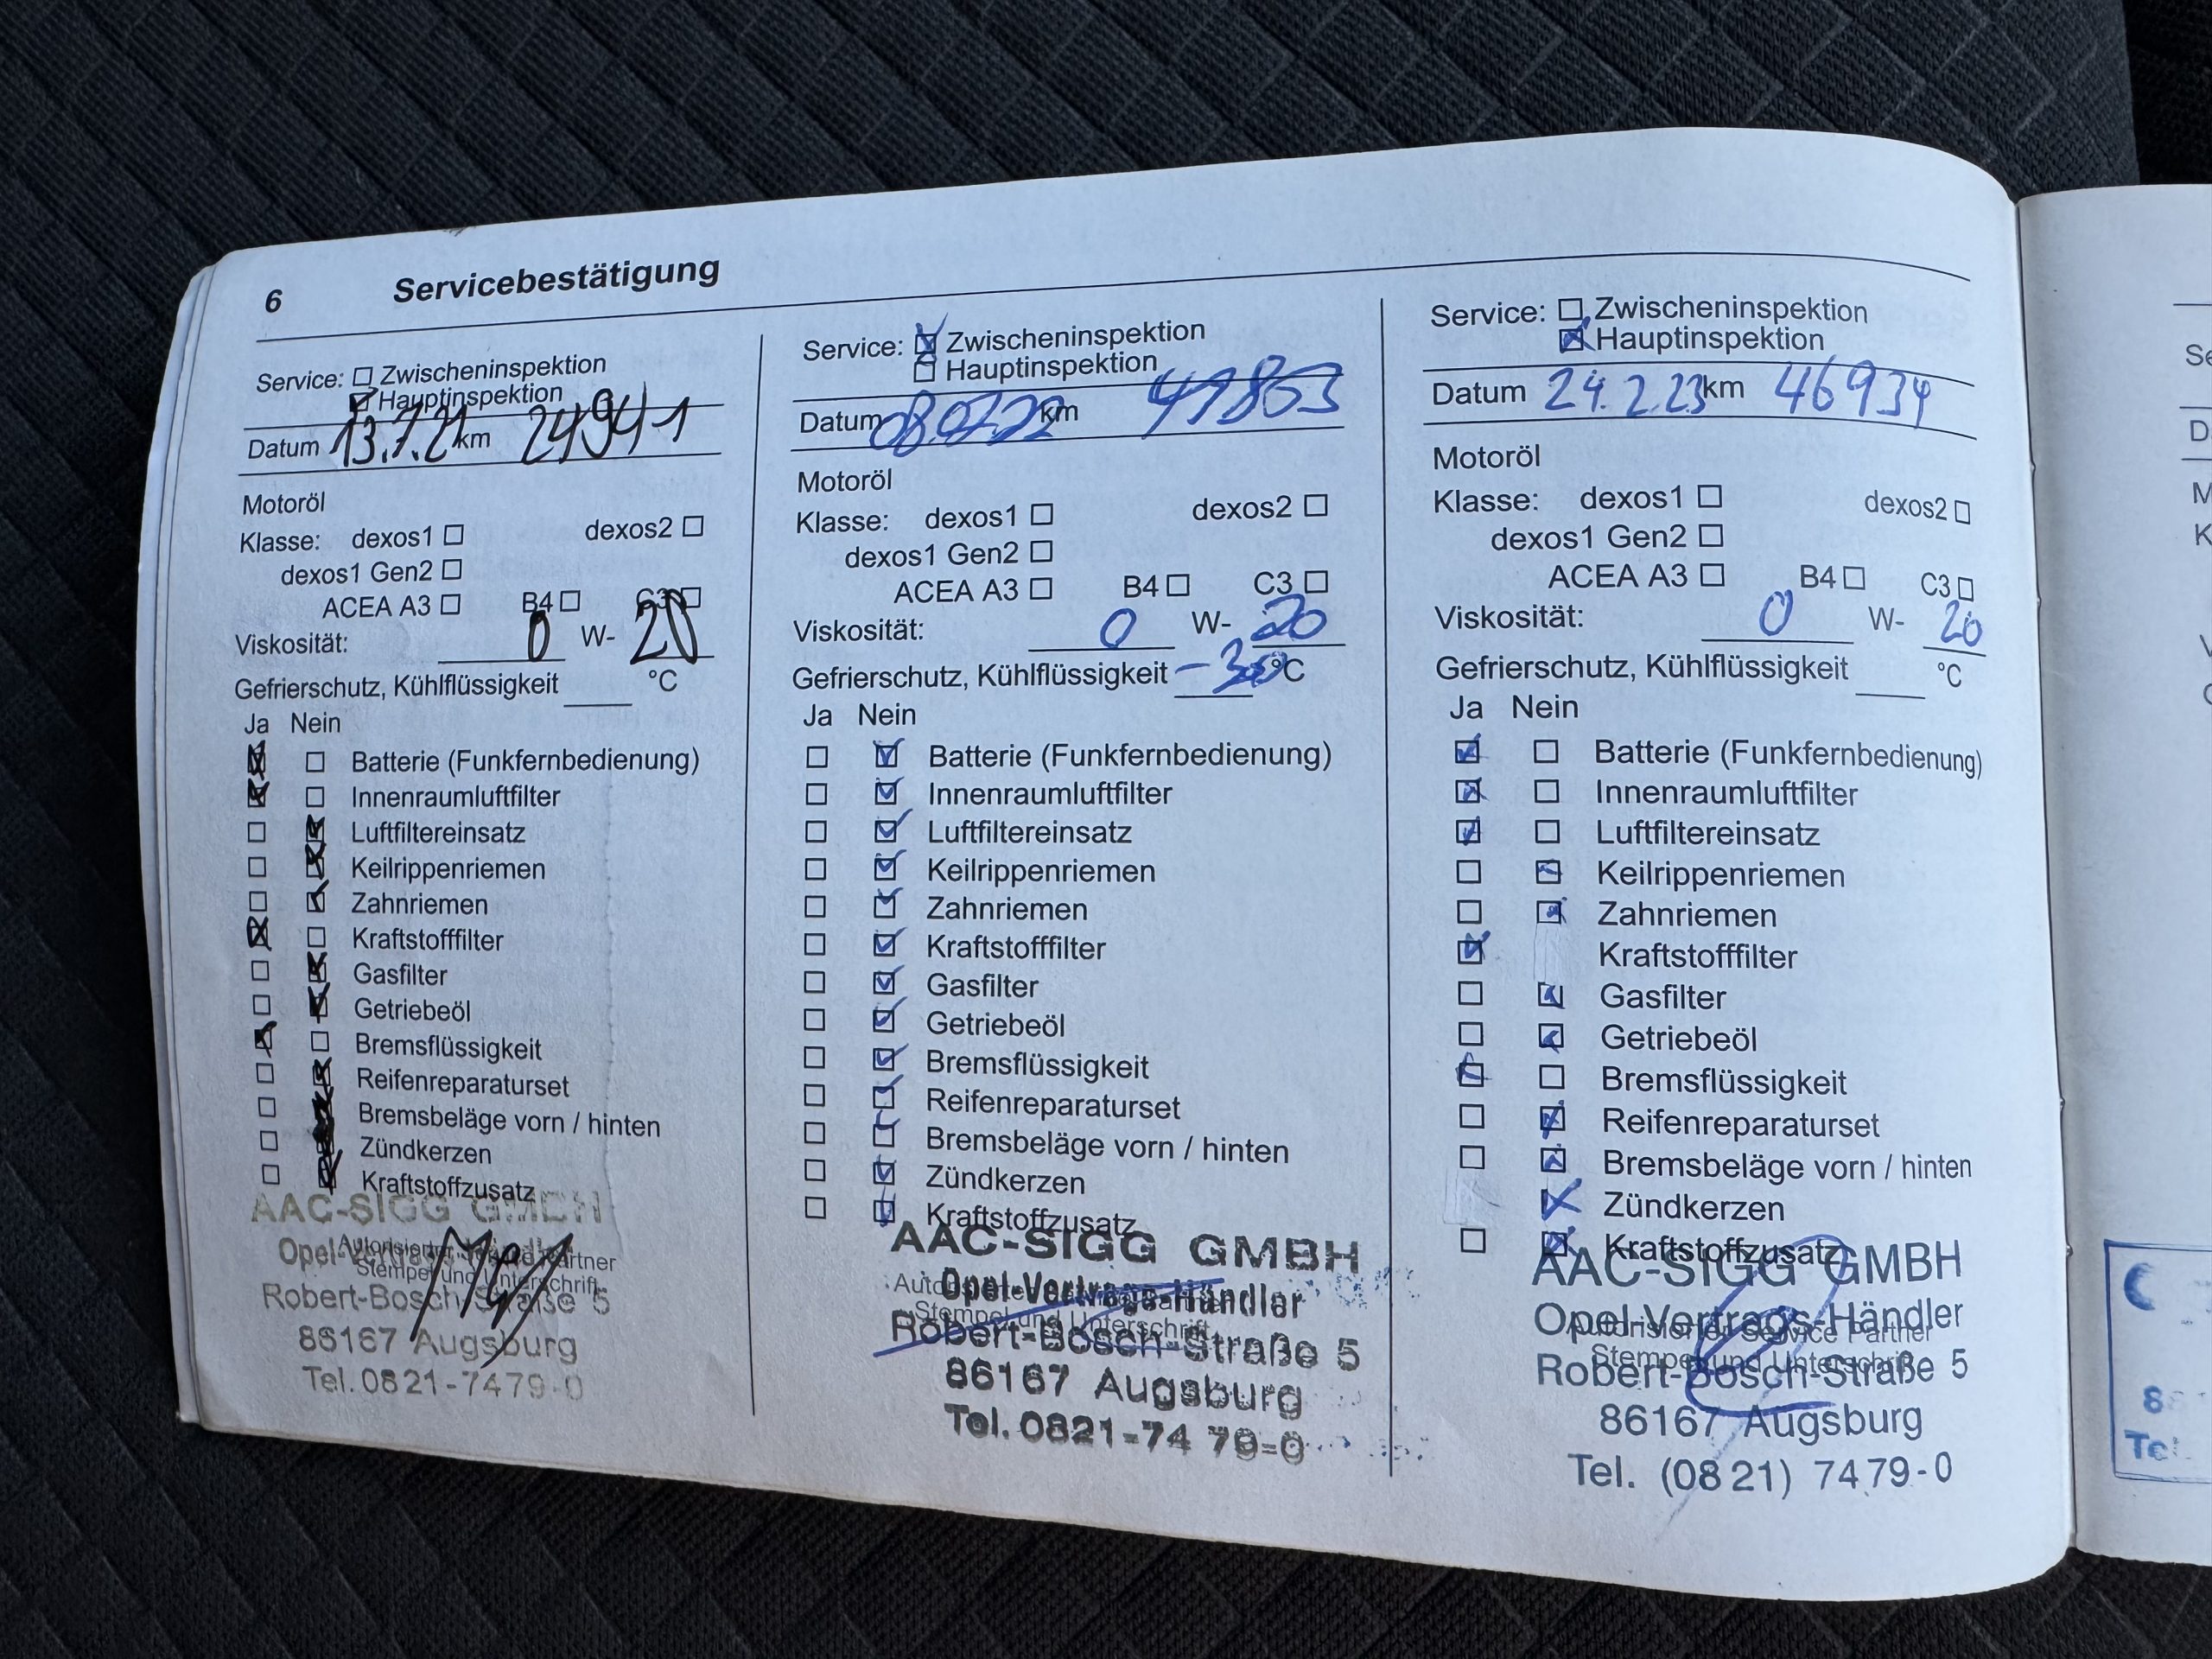 6 Servicebestätigung
Service: Zwischeninspektion
Hauptinspektion
Datum 13.7.21 km 24941
Motoröl
Klasse: dexos1 dexos2
dexos1 Gen2
ACEA A3 B4 C3
Viskosität: 0 W- 20
Gefrierschutz, Kühlflüssigkeit °C
Ja Nein
Batterie (Funkfernbedienung)
Innenraumluftfilter
Luftfiltereinsatz
Keilrippenriemen
Zahnriemen
Kraftstofffilter
Gasfilter
Getriebeöl
Bremsflüssigkeit
Reifenreparaturset
Bremsbeläge vorn / hinten
Zündkerzen
Kraftstoffzusatz
AAC-SIGG GMBH
Autorisierter Service Partner
Stempel und Unterschrift
Robert-Bosch-Straße 5
86167 Augsburg
Tel. 0821-7479-0
Service: Zwischeninspektion
Hauptinspektion
Datum 08.07.22 km 41803
Motoröl
Klasse: dexos1 dexos2
dexos1 Gen2
ACEA A3 B4 C3
Viskosität: 0 W- 20
Gefrierschutz, Kühlflüssigkeit °C
Ja Nein
Batterie (Funkfernbedienung)
Innenraumluftfilter
Luftfiltereinsatz
Keilrippenriemen
Zahnriemen
Kraftstofffilter
Gasfilter
Getriebeöl
Bremsflüssigkeit
Reifenreparaturset
Bremsbeläge vorn / hinten
Zündkerzen
Kraftstoffzusatz
AAC-SIGG GMBH
Opel-Vertrags-Händler
Stempel und Unterschrift
Robert-Bosch-Straße 5
86167 Augsburg
Tel. 0821-74 79-0
Service: Zwischeninspektion
Hauptinspektion
Datum 24.2.23 km 46934
Motoröl
Klasse: dexos1 dexos2
dexos1 Gen2
ACEA A3 B4 C3
Viskosität: 0 W- 20
Gefrierschutz, Kühlflüssigkeit °C
Ja Nein
Batterie (Funkfernbedienung)
Innenraumluftfilter
Luftfiltereinsatz
Keilrippenriemen
Zahnriemen
Kraftstofffilter
Gasfilter
Getriebeöl
Bremsflüssigkeit
Reifenreparaturset
Bremsbeläge vorn / hinten
Zündkerzen
Kraftstoffzusatz
AAC-SIGG GMBH
Opel-Vertrags-Händler
Autorisierter Service Partner
Stempel und Unterschrift
Robert-Bosch-Straße 5
86167 Augsburg
Tel. (08 21) 74 79-0